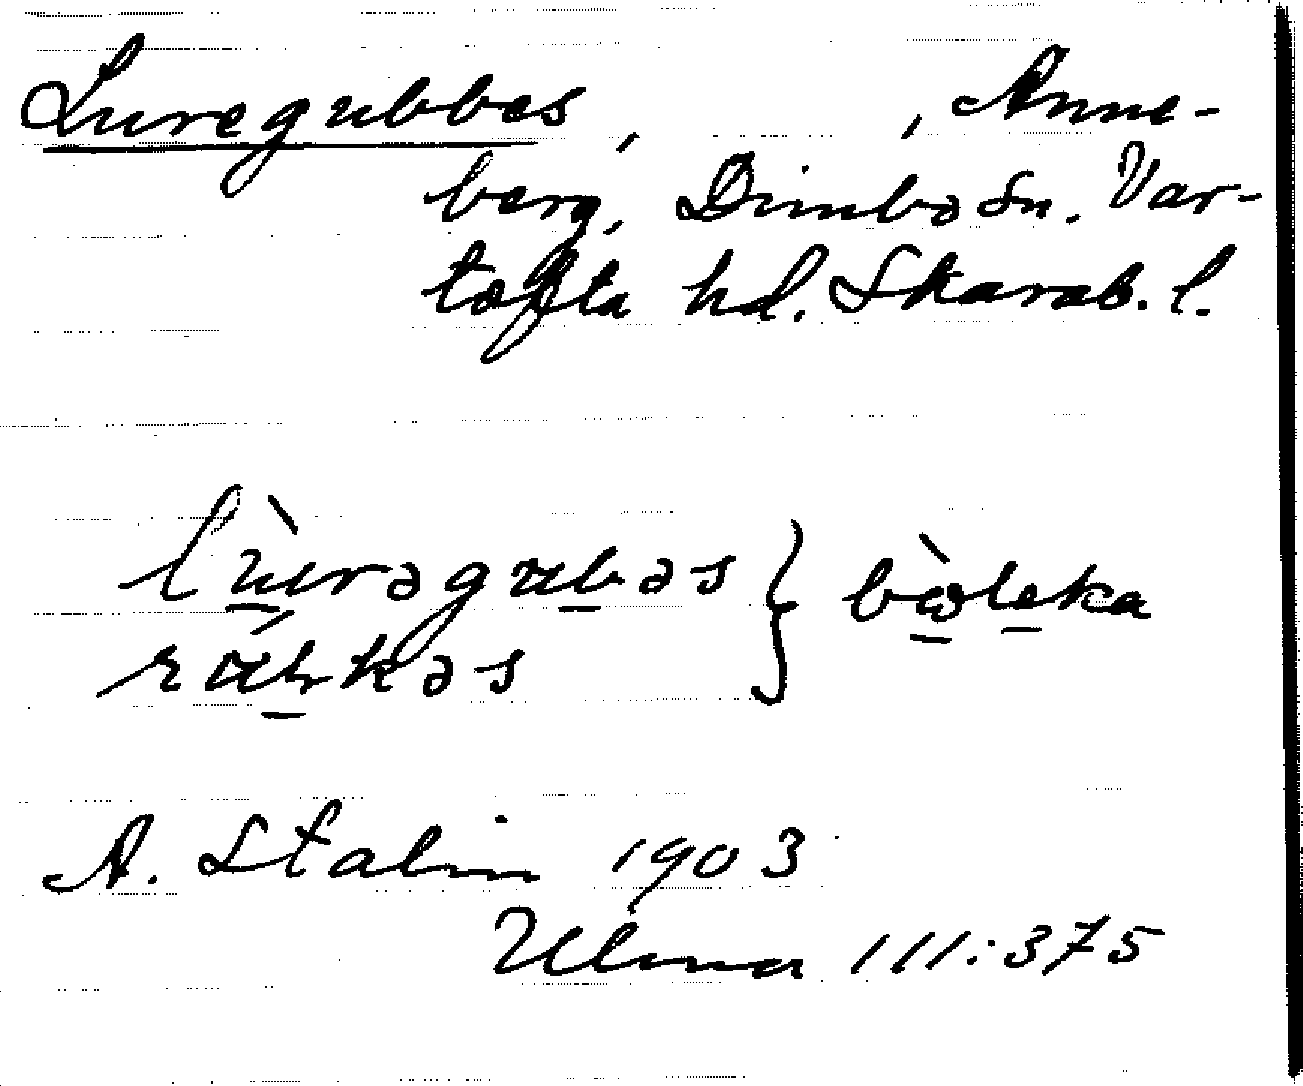 Luregubbes, , Anne-
berg, Dimbo sn. Var-
tofta hd. Skarab. l.
lùrəgubəs } bòleka
A. Stalin 1903
Ulma 111:375